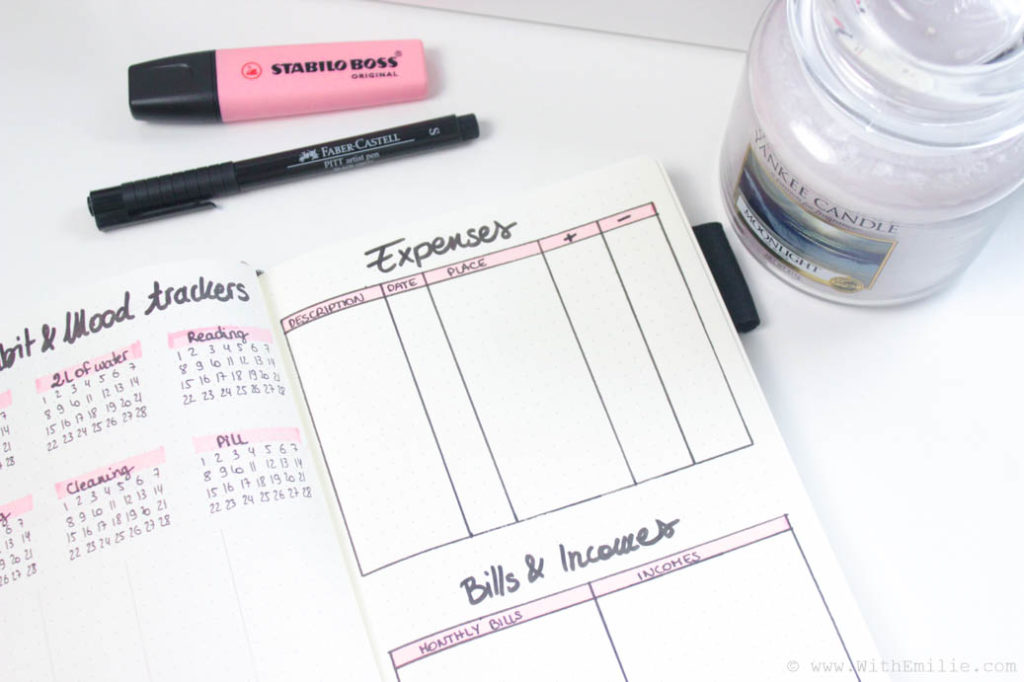 STABILO BOSS®
ORIGINAL
FABER-CASTELL
PITT artist pen
S
YANKEE CANDLE
MOONLIGHT
bit & Mood trackers
2L of water
1 2 3 4 5 6 7
8 9 10 11 12 13 14
15 16 17 18 19 20 21
22 23 24 25 26 27 28
Reading
1 2 3 4 5 6 7
8 9 10 11 12 13 14
15 16 17 18 19 20 21
22 23 24 25 26 27 28
7
14
21
28
Cleaning
1 2 3 4 5 6 7
8 9 10 11 12 13 14
15 16 17 18 19 20 21
22 23 24 25 26 27 28
Pill
1 2 3 4 5 6 7
8 9 10 11 12 13 14
15 16 17 18 19 20 21
22 23 24 25 26 27 28
g
6 7
13 14
19 20 21
26 27 28
Expenses
DESCRIPTION DATE PLACE + -
Bills & Incomes
MONTHLY BILLS INCOMES
© www.WithEmilie.com